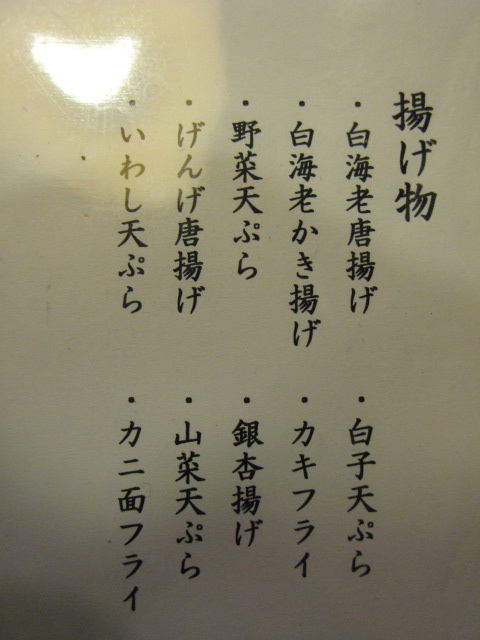 揚げ物
・白海老唐揚げ
・白海老かき揚げ
・野菜天ぷら
・げんげ唐揚げ
・いわし天ぷら
・白子天ぷら
・カキフライ
・銀杏揚げ
・山菜天ぷら
・カニ面フライ